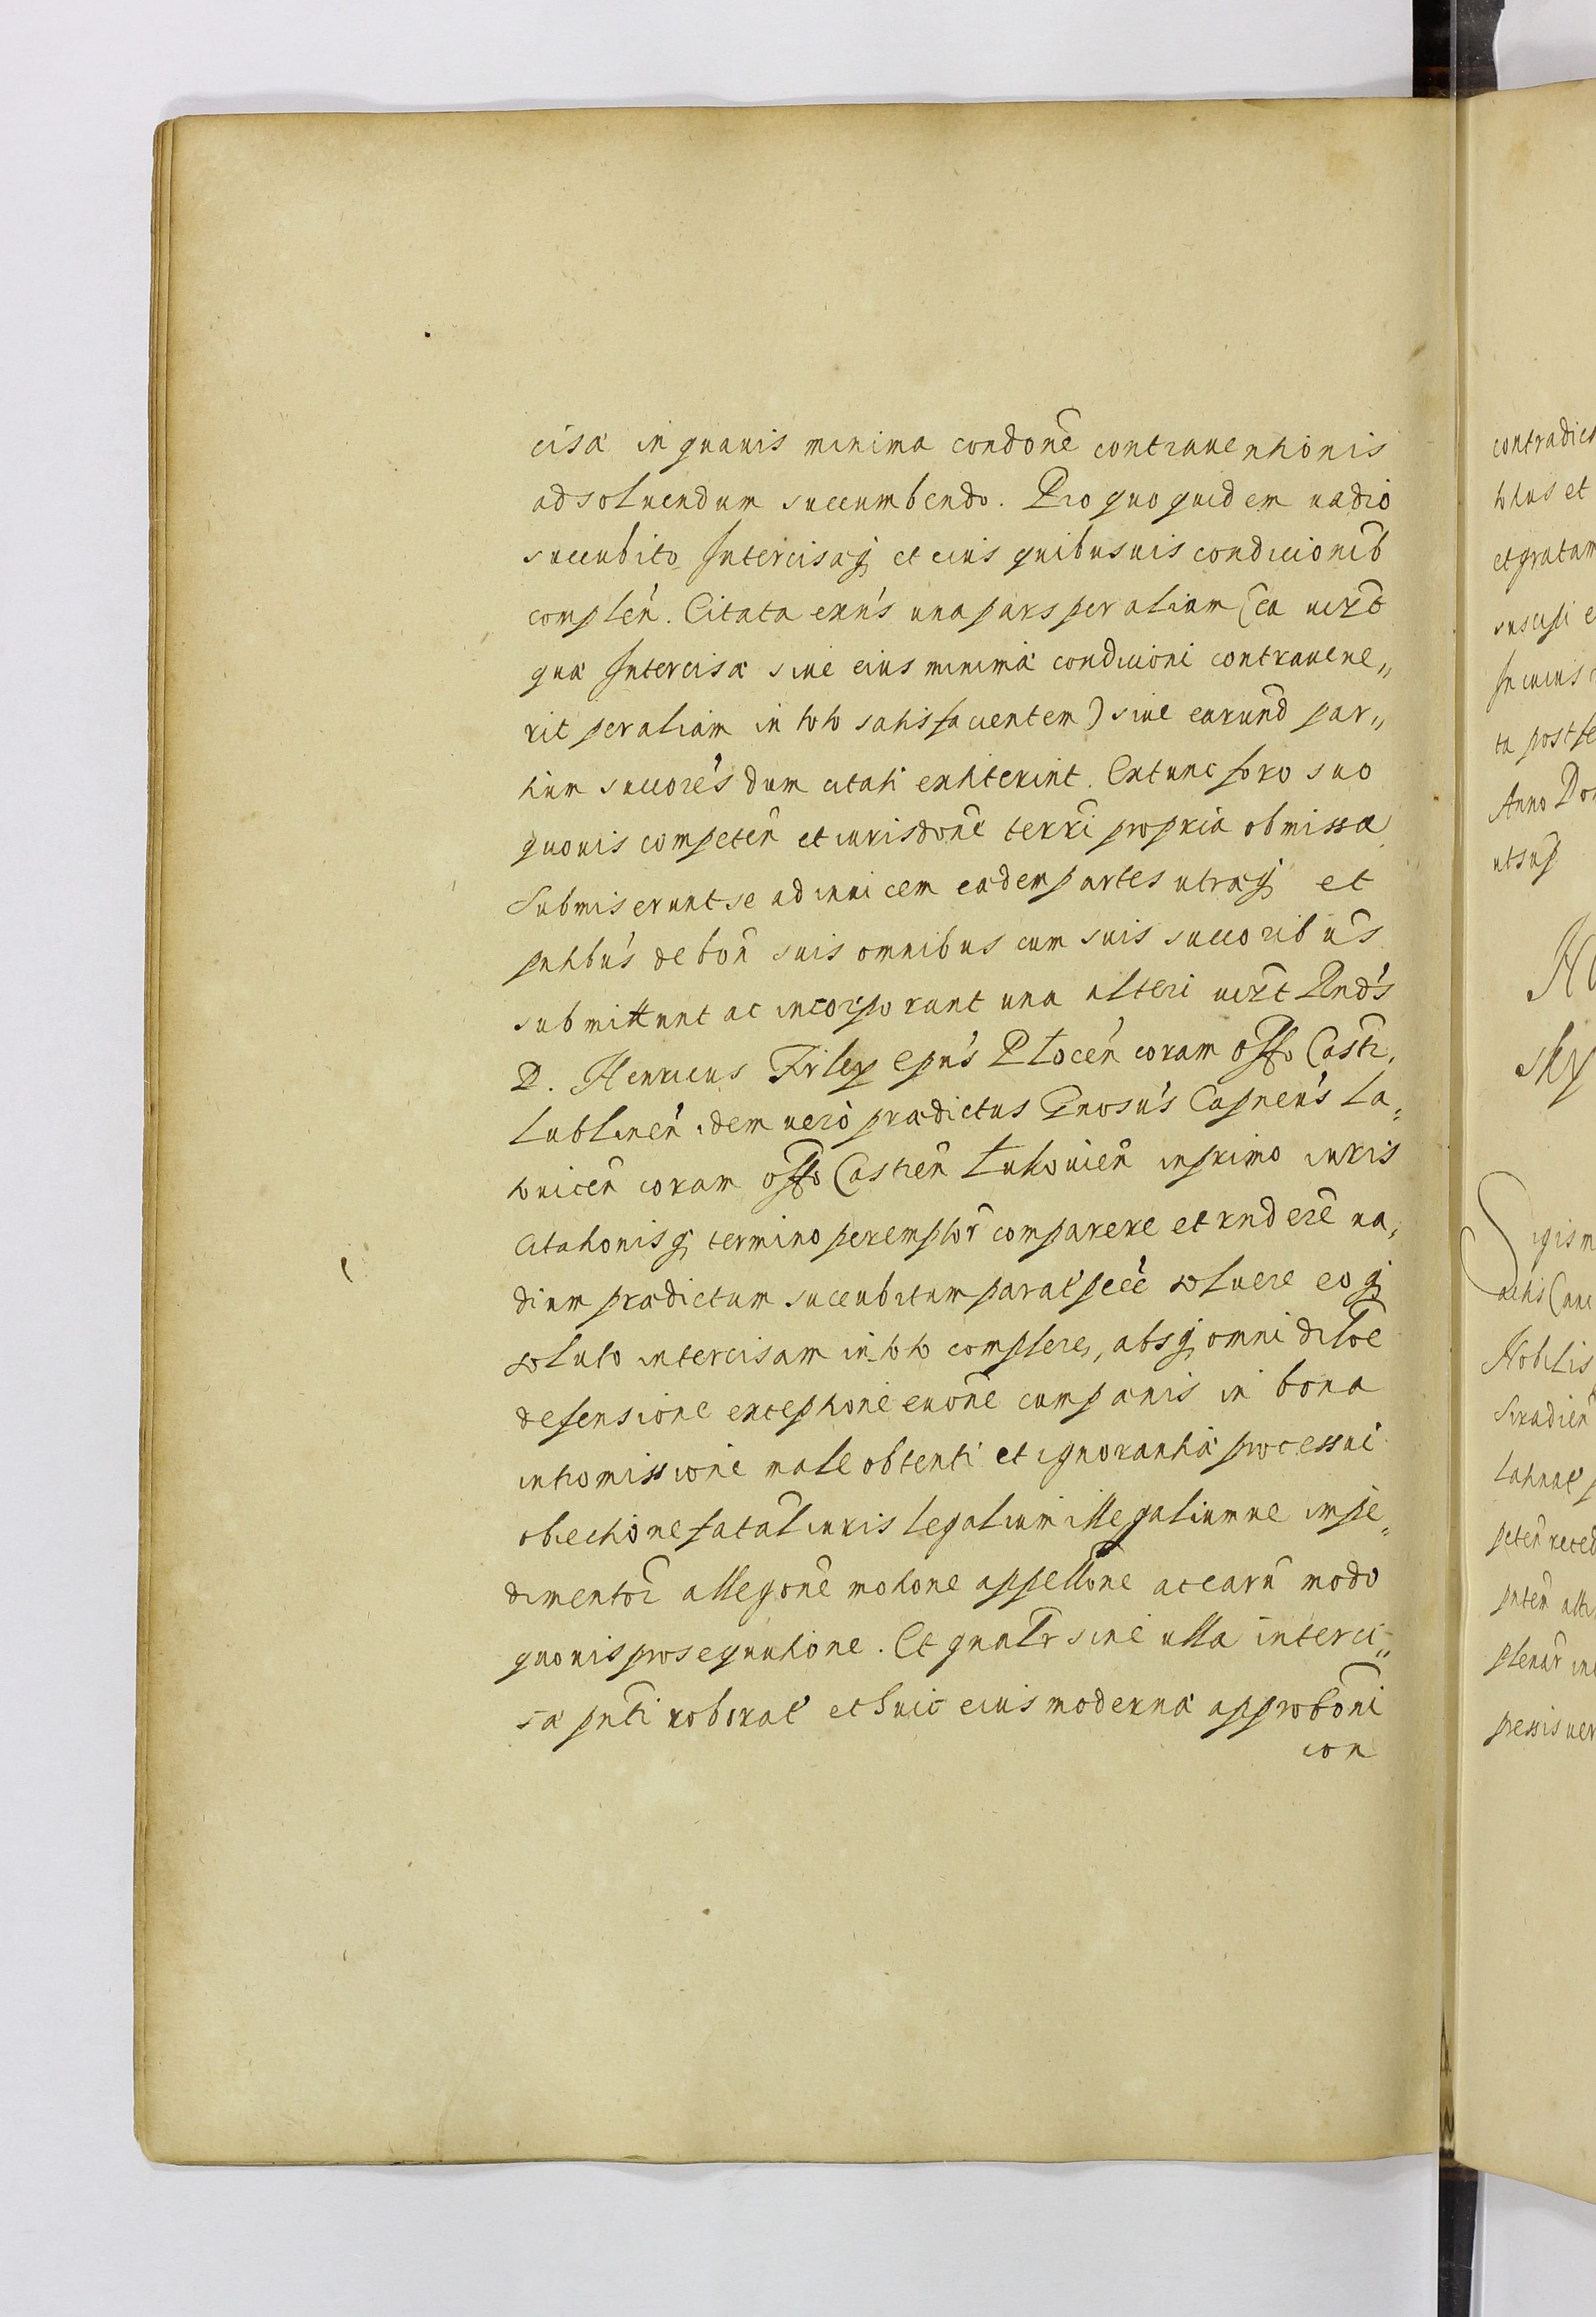 cisa in quauis minima condone contrauentionis
ad soluendum succumbendo. Pro quo quidem uadio
succubito Intercisaq et eius quibusuis condicionib
complen. Citata exns una pars per aliam (ea uizt
qua Intercisa siue eius minima condicioni contrauene„
rit per aliam in toto satisfacientem) siue earund par„
tium succores dum citati extiterint. Extunc foro suo
quouis competen et iurisdone terri propria obmissa
Submiserunt se ad inuicem eadem partes utraq et
pntibus de bon suis omnibus cum suis succoribus
submittunt ac incorporant una alteri uizt Rnds
D. Henricus Firley Epus Plocen coram offo Castr.
Lublinen idem uero prædictus Gnosus Capneus La„
touicen coram offo Castren Lukouien in primo iuris
Citationisq termino peremptor comparere et rndere ua„
dium prædictum succubitum parat peee soluere eoq
soluto intercisam in toto complere, absq omni diloe
defensione exceptione euone cumpanis in bona
intromissione male obtenti et ignorantia processui
obiectione fatal iuris legalium illegaliumue impe„
dimentor allegone motone appellone ac earu modo
quouis prosequutione. Et gnalr siue ulla interci„
sa pnti roborat et huic eius moderna approboni
con
contradict
totus et
et gratam
suscepi e
In cuius
ta post se
Anno Do
ut sup
sky
Sigism
Nobilis
Siradien
peten reced
pnten alti
plenar in
pressis uer